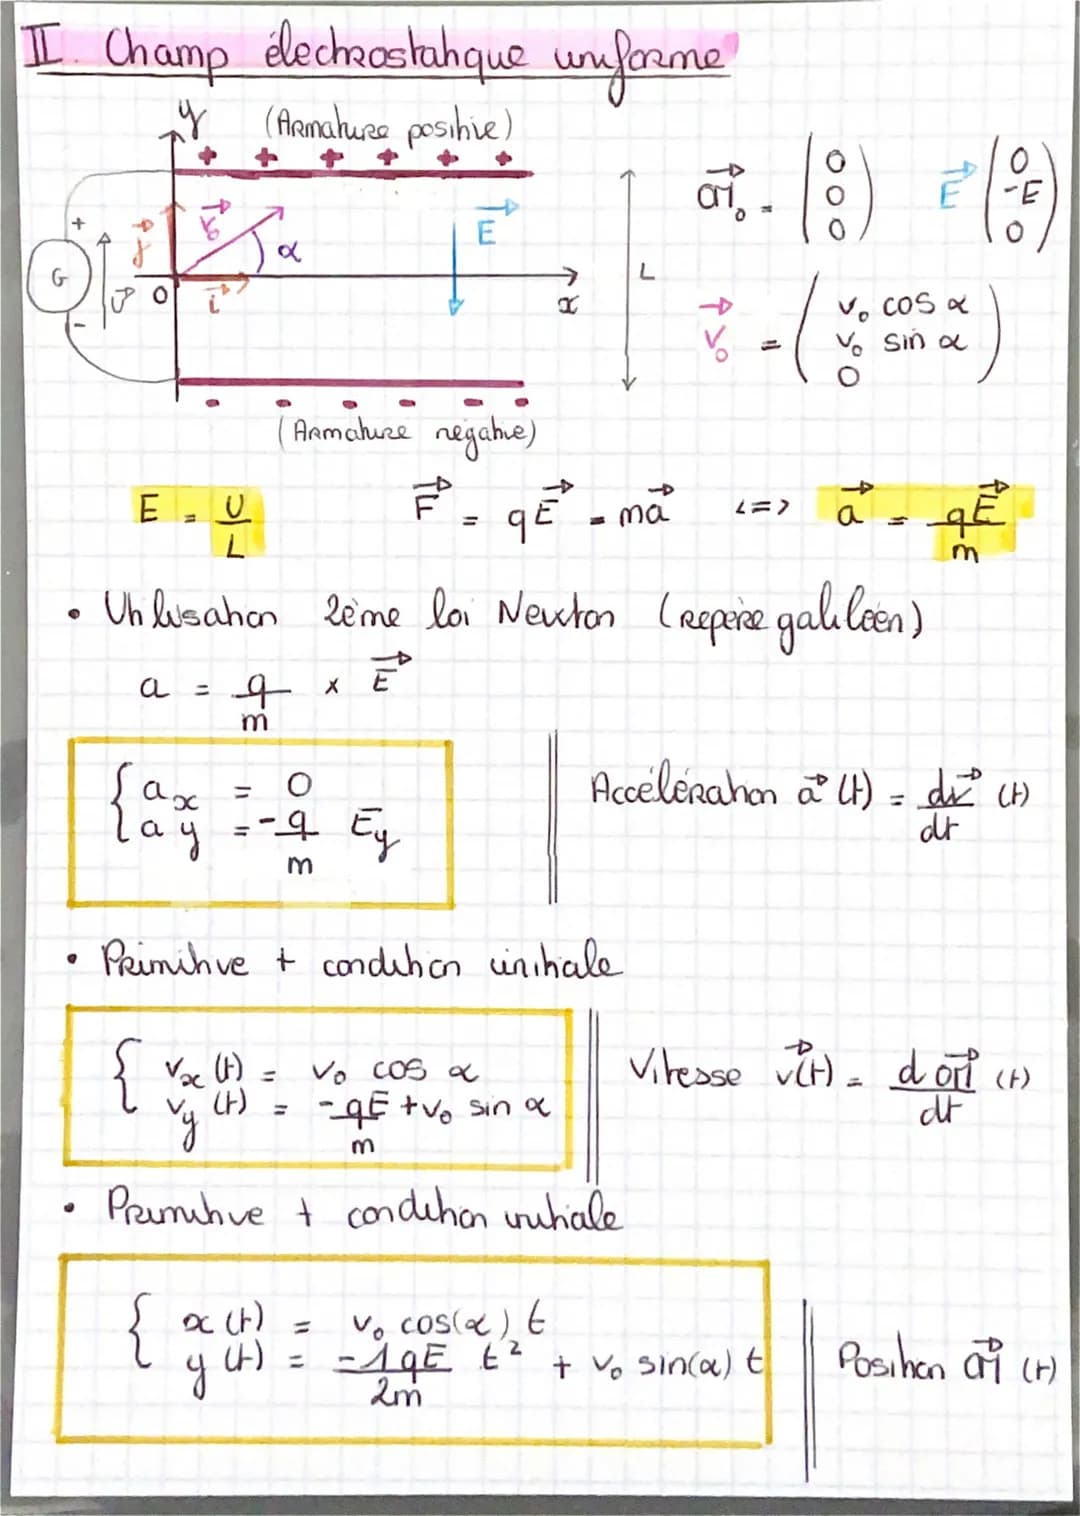 II. Champ électrostatique uniforme
y (Armature positive)
+ + + + + +
+ G - U j v₀ α E L
O i x
- - - - - -
(Armature négative)
OM₀ = (0 0 0) E (0 -E 0)
v₀ = (v₀ cos α v₀ sin α 0)
E = U/L F = qE = ma <=> a = qE/m
• Utilisation 2ème loi Newton (repère galiléen)
a = q/m × E
{ax = 0
ay = -q/m Ey
Accélération a(t) = dv/dt (t)
• Primitive + condition initiale
{vx(t) = v₀ cos α
vy(t) = -qE/m + v₀ sin α
Vitesse v(t) = dOM/dt (t)
• Primitive + condition initiale
{x(t) = v₀ cos(α) t
y(t) = -1qE/2m t² + v₀ sin(α) t
Position OM (t)